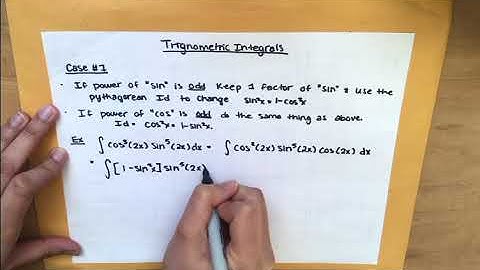 Trignometric Integrals
Case #1
· If power of "sin" is odd keep 1 factor of "sin" & use the
pythagorean Id to change sin²x = 1-cos²x
· If power of "cos" is odd do the same thing as above.
Id = cos²x = 1-sin²x.
Ex ∫ cos³(2x) sin⁵(2x) dx = ∫ cos²(2x) sin⁵(2x) cos(2x) dx
= ∫ [1-sin²x] sin⁵(2x)